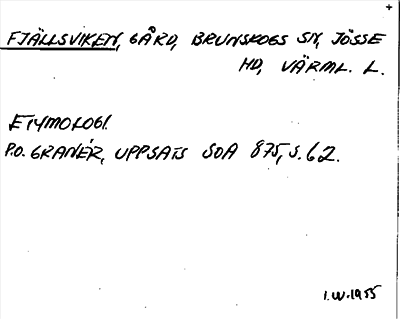 FJÄLLSVIKEN, GÅRD, BRUNSKOGS SN, JÖSSE
HD, VÄRML. L.
ETYMOLOGI.
P.O. GRANÉR, UPPSATS SOA 875, S. 62.
I.W. 1955